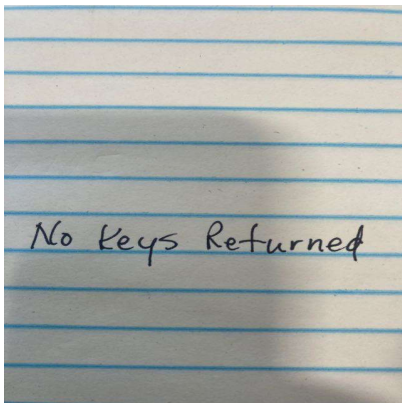 No Keys Returned